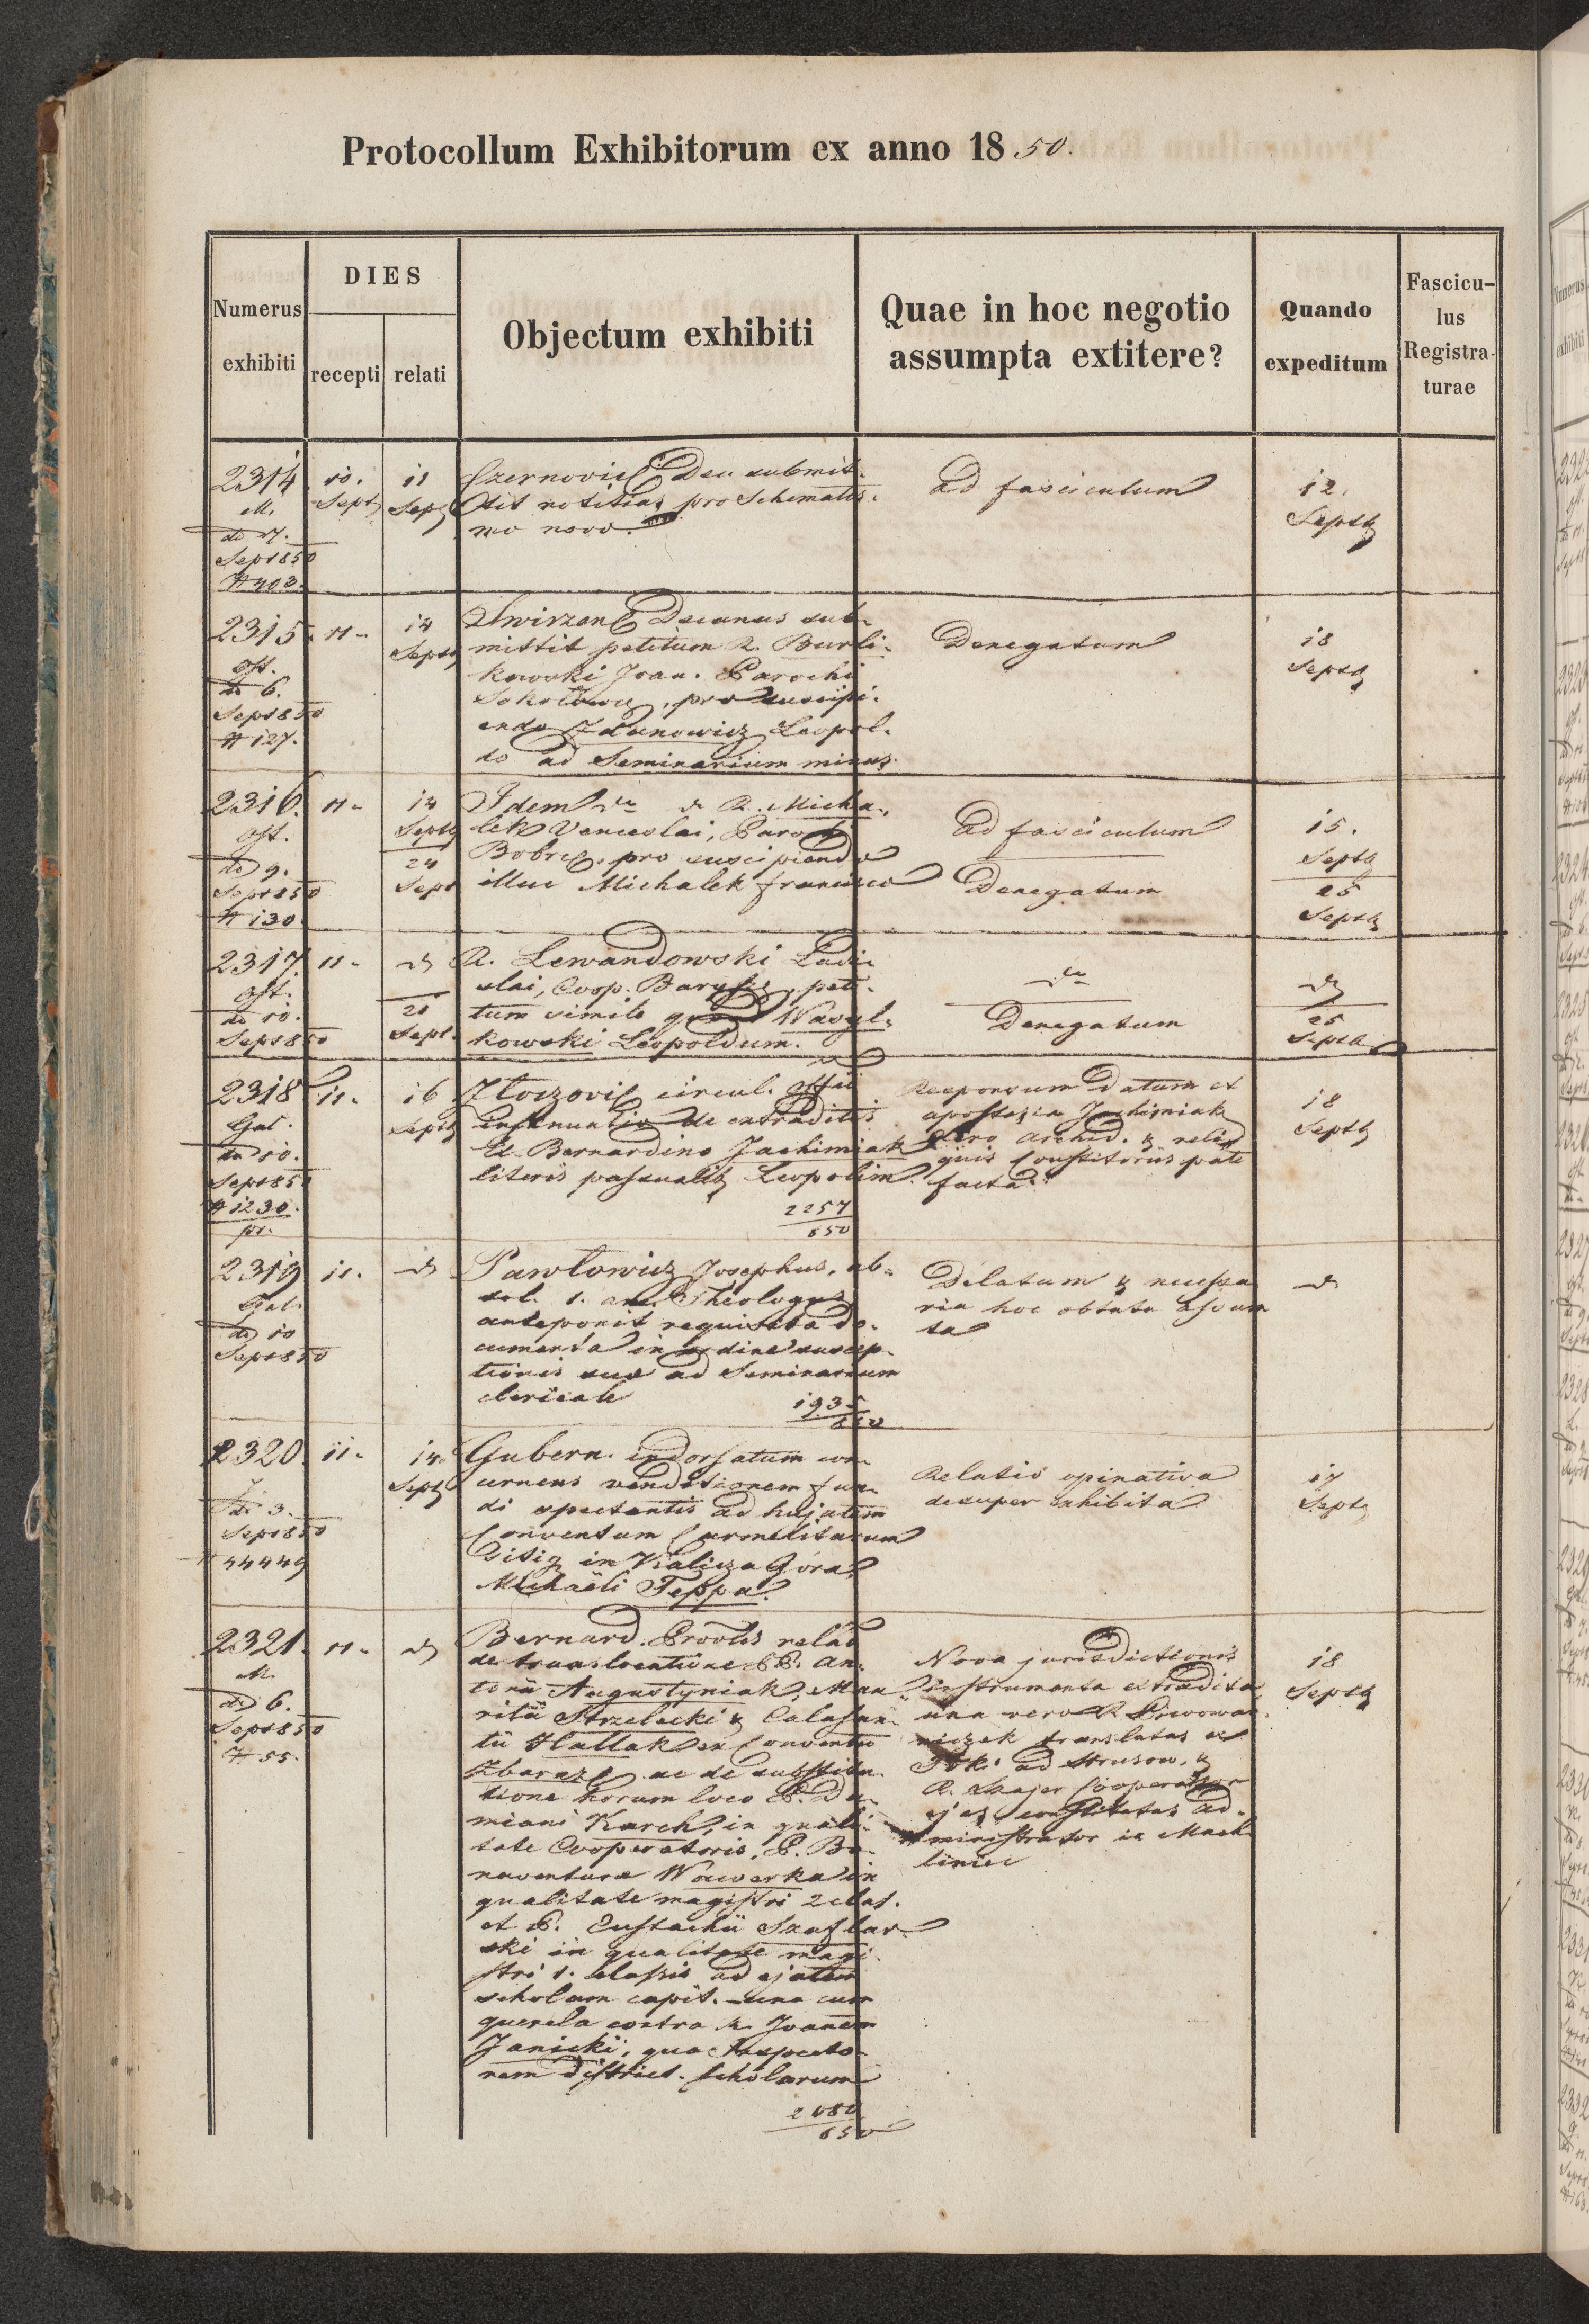 Protocollum Exhibitorum ex anno 1850.
Numerus exhibiti
DIES
recepti
relati
Objectum exhibiti
Quae in hoc negotio assumpta extitere?
Quando expeditum
Fascicu-
lus
Registra-
turae
2314
M.
de 7.
Sept 850
# 403.
10.
Sept
11
Sept
Czernovic Dec submit-
tit notitias pro Schematis-
mo novo.
Ad fasciculum
12.
Septb
2315
de 6.
Sept 850
# 127.
11.
14
Septb
Swirzen Decanus sub-
mittit petitum R. Burli-
kowski Joan. Parochi
pro suscipi-
endo Zdunowicz Leopol-
do ad Seminarium minus
Denegatum
18
Septb
2316.
de 9.
Sept 850
# 130.
11.
14
Septb
24
Sept
Idem R. Micha-
lek Venceslai, Paroch
Bobrc. pro suscipiendo
illuc Michalek Francisco
Ad fasciculum
Denegatum
15.
Septb
25
Septb
2317.
de 10.
Sept 850
11.
Sept.
R. Lewandowski Ladis-
slai, Coop. Barysz, peti-
tum simile quoad Wasyl-
kowski Leopoldum.
Denegatum
25
Septb
2318
Gal.
de 10.
Sept 850
# 1230.
pr.
11.
16
Septb
Zloczovic circul. offii
insinuatio de extraditis
Bernardino Jachimiak
literis passualib Leopolim.
2257
850
Responsum datum et
apostasia Jachimiak
Clero Archid. & reli-
quis Consistoriis pate
facta.
18
Septb
2319
Gal.
de 10
Sept 850
11.
Pawłowicz Josephus, ab-
sol. 1. an. Theologus
anteponit requisita do-
cumenta in ordine suscep-
tionis suae ad Seminarium
clericale
1935
850
Delatum & necessa
ria hoc obtutu
ta
2320.
de 3.
Sept 850
# 44449
11.
14.
Sept
Gubern. indorsatum con-
cernens venditionem fun-
di spectantis ad hujatem
Conventum Carmelitarum
sitiq in Kalicza Góra
Michaëli Teppa.
Relatio opinativa
desuper exhibita
17
Septb
2321.
M.
de 6.
Sept 850
# 55.
11.
Bernard. Provlis relat
de translocatione PP. An-
tonii Augustyniak, Mau-
ritii Strzelecki & Calasan-
tii Hallak ex Conventu
Zbaraz, ac de substitu-
tione horum loco P. Da-
miani Karch, in quali-
tate Cooperatoris, P. Bo-
naventurae Wawerka in
qualitate magistri 2 clas.
et P. Eustachii Szaflar-
ski in qualitate magi-
stri 1. classis ad ejatem
scholam capit. una cum
querela contra R. Joanem
Janicki, qua Inspecto-
rem district. scholarum
2080
850
Nova jurisdictionis
instrumenta extradita,
una vero R. Piwowar-
translatus ex
Tok. ad Strusow, &
R. Szajer Cooperator
ejaz constitutus ad-
ministrator in Mach-
liniec
18
Septb